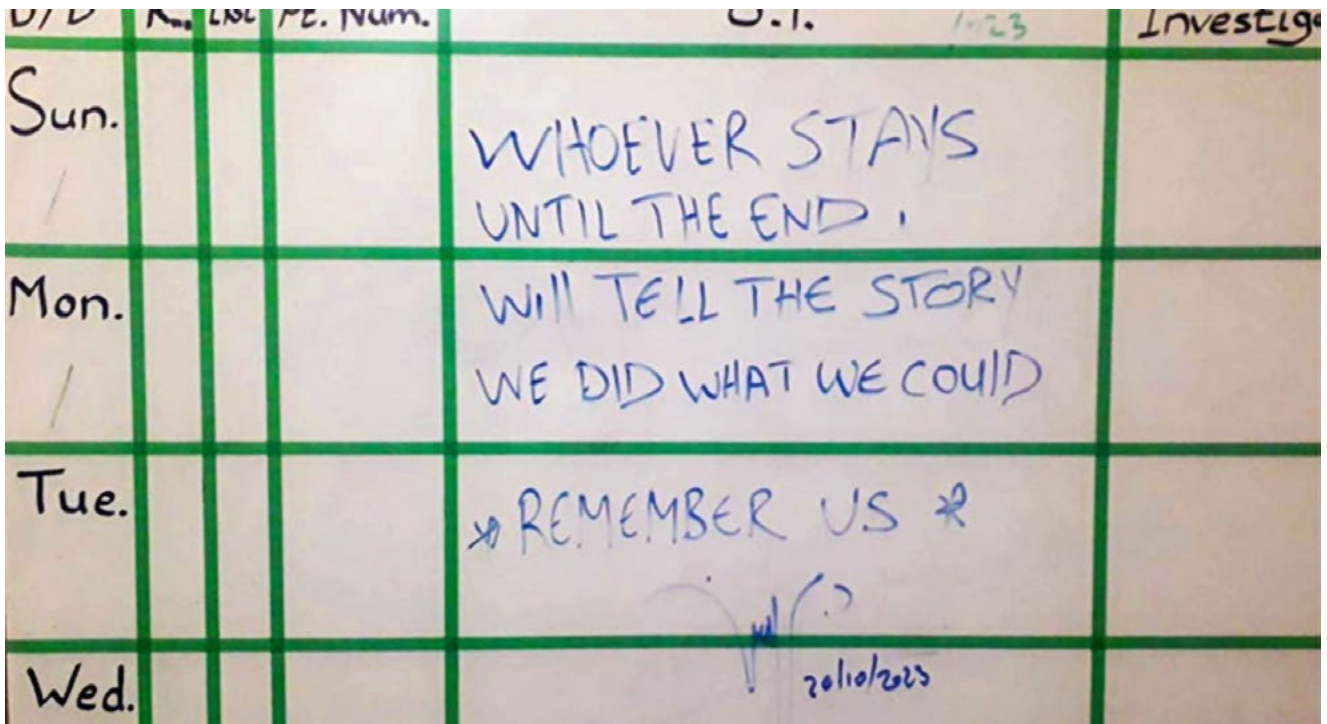 Pt. Num.
Investig
Sun.
WHOEVER STAYS
UNTIL THE END.
Mon.
Will TELL THE STORY
WE DID WHAT WE COULD
Tue.
*REMEMBER US *
Wed.
20/10/2023